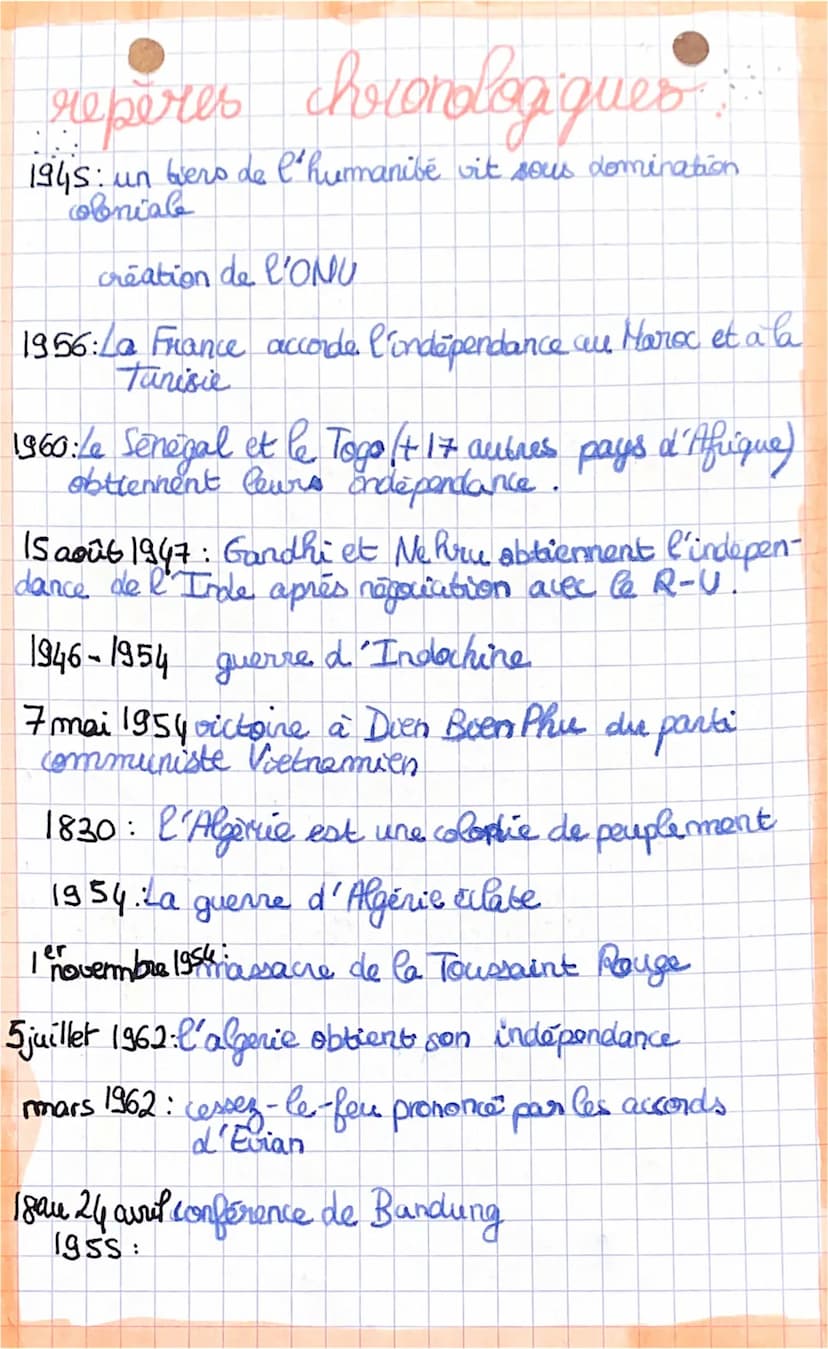 repères chronologiques
1945: un tiers de l'humanité vit sous domination
coloniale
création de l'ONU
1956: La France accorde l'indépendance au Maroc et a la
Tunisie
1960: Le Sénégal et le Togo (+ 17 autres pays d'Afrique)
obtiennent leurs indépendance.
15 août 1947: Gandhi et Nehru obtiennent l'indepen-
dance de l'Inde après négociation avec le R-U.
1946-1954 guerre d'Indochine
7 mai 1954 victoire à Dien Bien Phu du parti
communiste Vietnamien
1830: l'Algérie est une colonie de peuplement
1954: La guerre d'Algérie éclate
1er novembre 1954: massacre de la Toussaint Rouge
5 juillet 1962: l'algerie obtient son indépendance
mars 1962: cessez-le-feu prononcé par les accords
d'Evian
18 au 24 avril conférence de Bandung
1955: